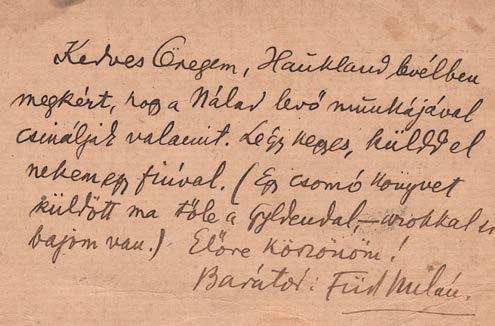 Kedves Öregem, Haukland levélben
megkért, hogy a Nálad levő munkájával
csináljak valamit. Légy kegyes, küldd el
nekem egy fiúval. (Egy csomó könyvet
küldött ma tőle a Gyldendal, – azokkal is
bajom van.) Előre köszönöm!
Barátod: Füst Milán.